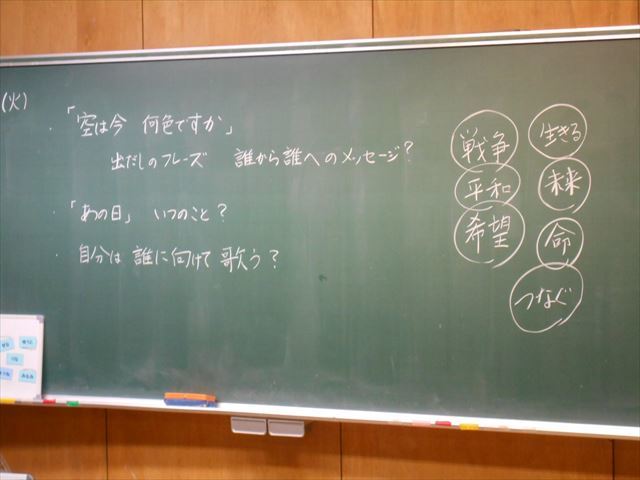 (火)
・「空は今 何色ですか」
出だしのフレーズ 誰から誰へのメッセージ?
・「あの日」 いつのこと?
・自分は 誰に向けて 歌う?
戦争
平和
希望
生きる
未来
命
つなぐ